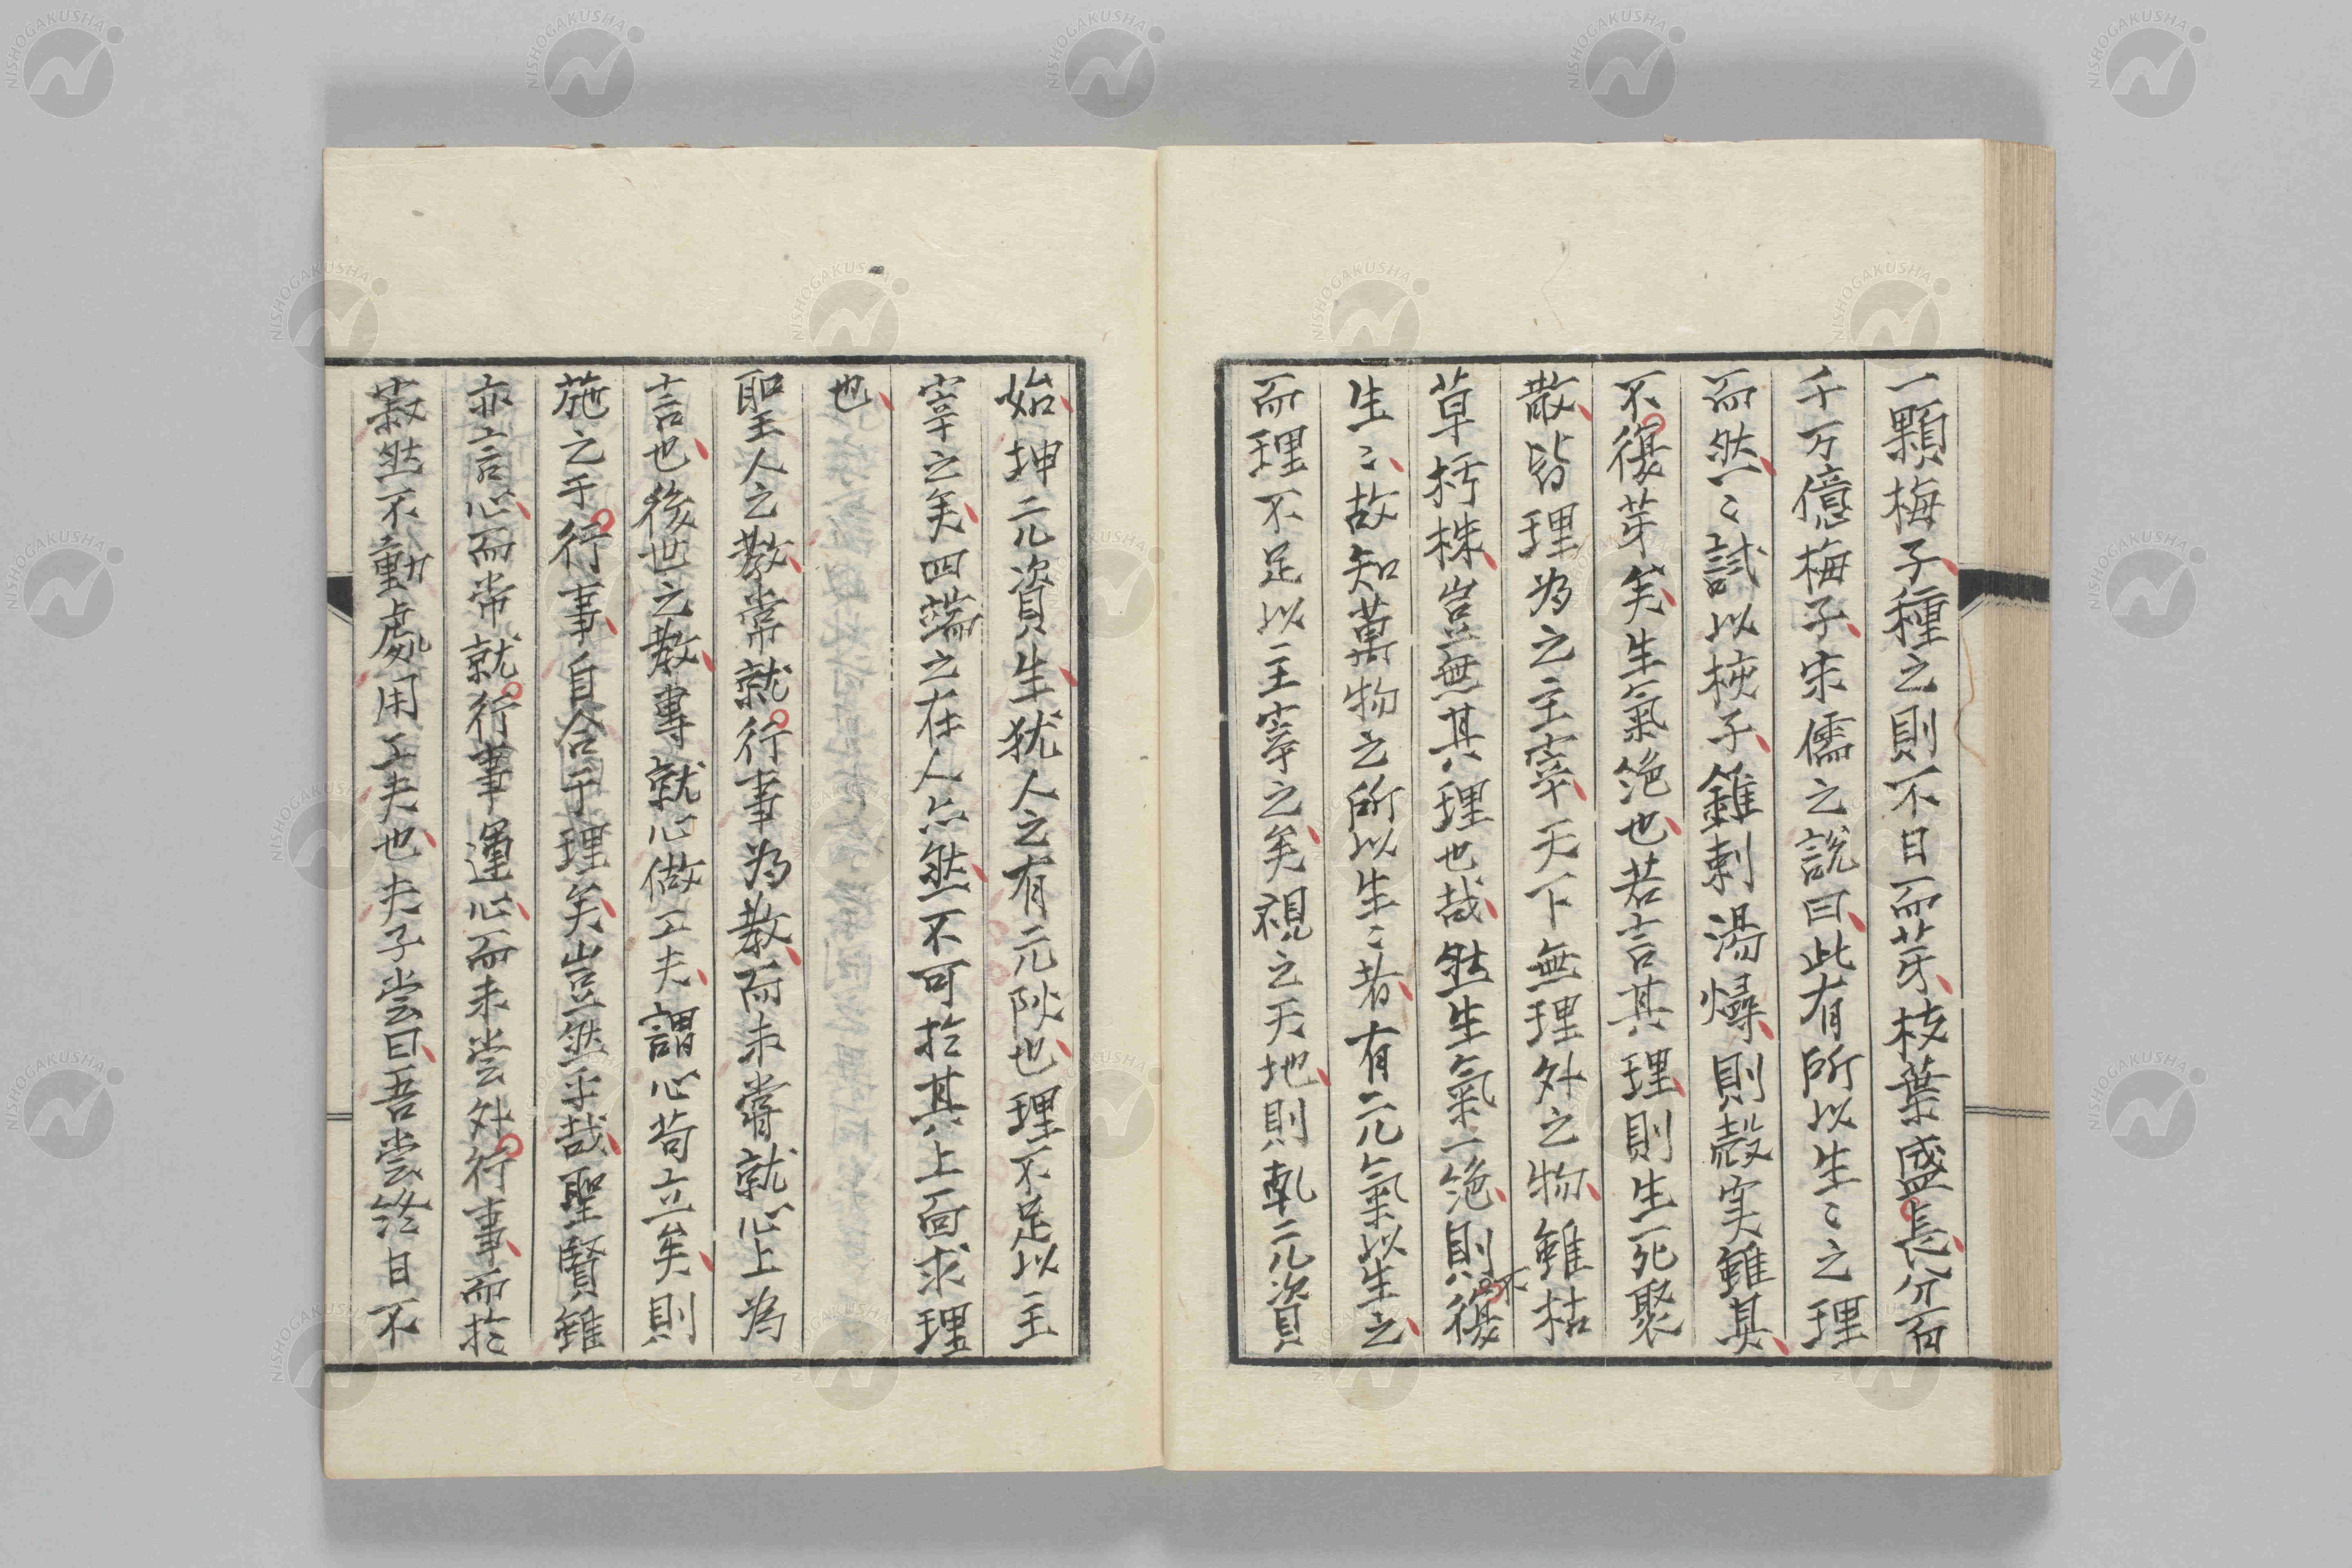 一顆梅子種之則不日而芽枝葉盛長分百
千万億梅子宋儒之説曰此有所以生〻之理
而然〻試以核子錐刺湯燖則殼実雖具
不復芽矣生氣絶也若言其理則生死聚
散皆理為之主宰天下無理外之物雖枯
草朽株豈無其理也哉然生氣一絶則不復
生〻故知萬物之所以生〻者有元氣以生之
而理不足以主宰之矣視之天地則乹元資
始坤元資生猶人之有元陽也理不足以主
宰之矣四端之在人亦然不可於其上面求理
也
聖人之教常就行事為教而未嘗就心上為
言也後世之教專就心做工夫謂心苟立矣則
施之于行事自合于理矣豈然乎哉聖賢雖
亦言心而常就行事運心而未尝外行事而於
寂然不動處用工夫也夫子尝曰吾尝终日不
NISHOGAKUSHA